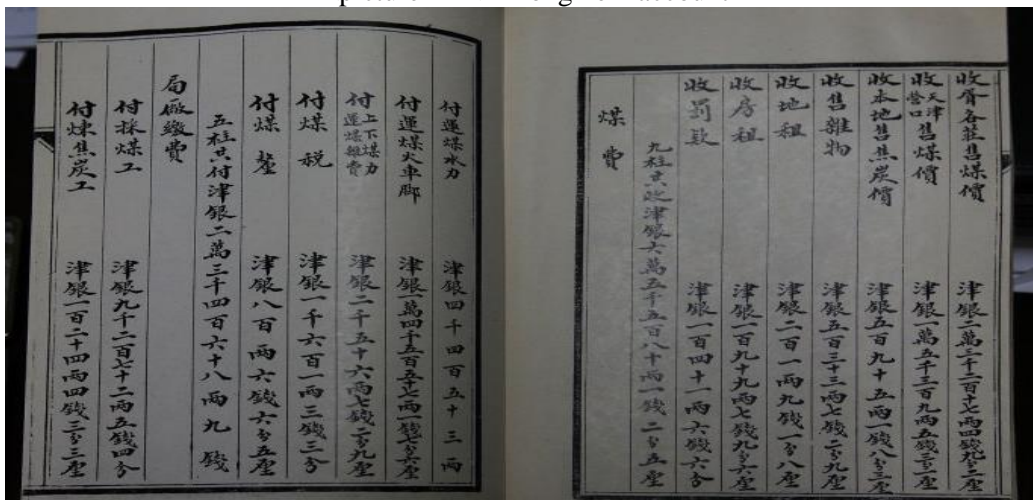 收胥各莊售煤價 津銀二萬三千二百十七兩四錢九分二厘
收天津營口售煤價 津銀一萬五千三百九兩五錢三分一厘
收本地售焦炭價 津銀五百九十五兩一錢八分三厘
收售雜物 津銀五百三十三兩七錢二分九厘
收地租 津銀二百一兩九錢一分八厘
收房租 津銀一百九十九兩七錢九分六厘
收罰款 津銀一百四十一兩六錢六分
九柱共收津銀六萬五千五百八十兩一錢二分五厘
煤費
付運煤水力 津銀四千四百五十三兩
付運煤火車脚 津銀一萬四千五百五十七兩一錢七分六厘
付上下煤力運煤雜費 津銀二千五十六兩七錢二分九厘
付煤稅 津銀一千六百一兩三錢三分
付煤釐 津銀八百兩六錢六分五厘
五柱共付津銀二萬三千四百六十八兩九錢
局廠繳費
付採煤工 津銀九千二百七十二兩五錢四分
付煉焦炭工 津銀一百二十四兩四錢三分三厘